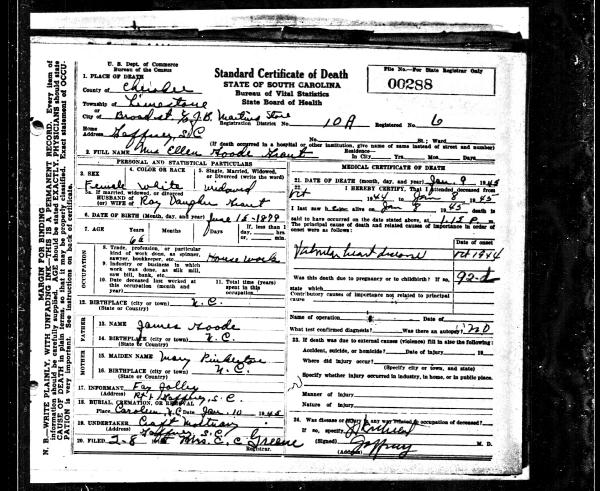 U. S. Dept. of Commerce
Bureau of the Census
Standard Certificate of Death
STATE OF SOUTH CAROLINA
Bureau of Vital Statistics
State Board of Health
File No.—For State Registrar Only
00288
1. PLACE OF DEATH
County of Cherokee
Township of Limestone
City of Broad st
Registration District No. 10A Registered No. 6
Home Address Gaffney, S.C. St.; Ward
(If death occurred in a hospital or other institution, give name of same instead of street and number)
2. FULL NAME Mrs Ellen Goode
Residence— In City Yrs. Mos. Days
PERSONAL AND STATISTICAL PARTICULARS
3. SEX Female
4. COLOR OR RACE White
5. Single, Married, Widowed, or Divorced (write the word) Widowed
5a. If married, widowed, or divorced
HUSBAND of
(or) WIFE of Roy
6. DATE OF BIRTH (Month, day, and year) June 1879
7. AGE Years Months Days If, less than 1 day, hrs. or min.
OCCUPATION
8. Trade, profession, or particular kind of work done, as spinner, sawyer, bookkeeper, etc. House work
9. Industry or business in which work was done, as silk mill, saw mill, bank, etc.
10. Date deceased last worked at this occupation (month and year)
11. Total time (years) spent in this occupation
12. BIRTHPLACE (city or town) N.C.
(State or Country)
FATHER
13. NAME James Goode
14. BIRTHPLACE (city or town) N.C.
(State or Country)
MOTHER
15. MAIDEN NAME Mary Pinkerton
16. BIRTHPLACE (city or town) N.C.
(State or Country)
17. INFORMANT Fay Jolley
(Address) Gaffney, S.C.
18. BURIAL, CREMATION, OR REMOVAL
Place Date Jan. 10 1945
19. UNDERTAKER
(Address) Gaffney S.C.
20. FILED 2-8 Mrs. E. C. Greene
Registrar.
MEDICAL CERTIFICATE OF DEATH
21. DATE OF DEATH (month, day, and year) Jan. 9 1945
22. I HEREBY CERTIFY, That I attended deceased from
Oct 1944 to Jan 8 1945
I last saw h alive on Jan 1945 death is
said to have occurred on the date stated above, at m.
The principal cause of death and related causes of importance in order of onset were as follows:
Date of onset
Valvular heart disease Oct 1944
Was this death due to pregnancy or to childbirth? If so, state which
Contributory causes of importance not related to principal cause
Name of operation
What test confirmed diagnosis? Was there an autopsy? no
23. If death was due to external causes (violence) fill in also the following:
Accident, suicide, or homicide? Date of injury 19
Where did injury occur?
(Specify city or town, and state)
Specify whether injury occurred in industry, in home, or in public place.
Manner of injury
Nature of injury
24. Was disease or injury in any way related to occupation of deceased?
If so, specify
(Signed) M. D.
(Address) Gaffney
MARGIN FOR BINDING
N. B.—WRITE PLAINLY, WITH UNFADING INK—THIS IS A PERMANENT RECORD. Every item of
information should be carefully supplied. AGE should be stated EXACTLY. PHYSICIANS should state
CAUSE OF DEATH in plain terms, so that it may be properly classified. Exact statement of OCCU-
PATION is very important. See instructions on back of certificate.